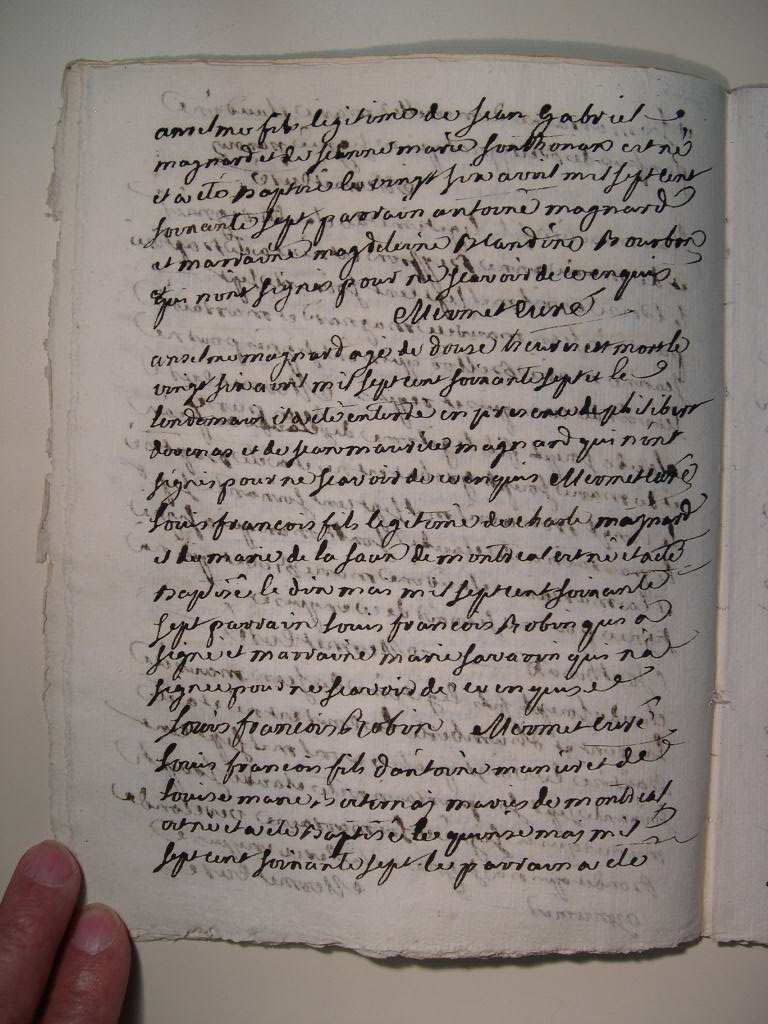 anselme fils legitime de jean Gabriel
magnard et de jeanne marie fonthonan est né
et a été baptisé le vingt six avril mil sept cent
soixante sept, parrain antoine magnard
et marraine magdeleine blandine bourbon
qui nont signés pour ne scavoir de ce enquis
Mermet curé
anselme magnard agé de douse heures est mort le
vingt six avril mil sept cent soixante sept et le
lendemain il a été enterré en presence de philibert
et de jean maurice magnard qui n'ont
signés pour ne scavoir de ce enquis Mermet curé
louis francois fils legitime de charle magnard
et de marie de la de montreal est né et a été
baptisé le dix mai mil sept cent soixante
sept parrain louis francois Robin qui a
signé et marraine marie savarin qui n'a
signée pour ne scavoir de ce enquise
Louis francois Robin Mermet curé
louis francois fils d'antoine et de
louise marie mariés de montreal
est né et a été baptisé le quinse mai mil
sept cent soixante sept le parrain a été